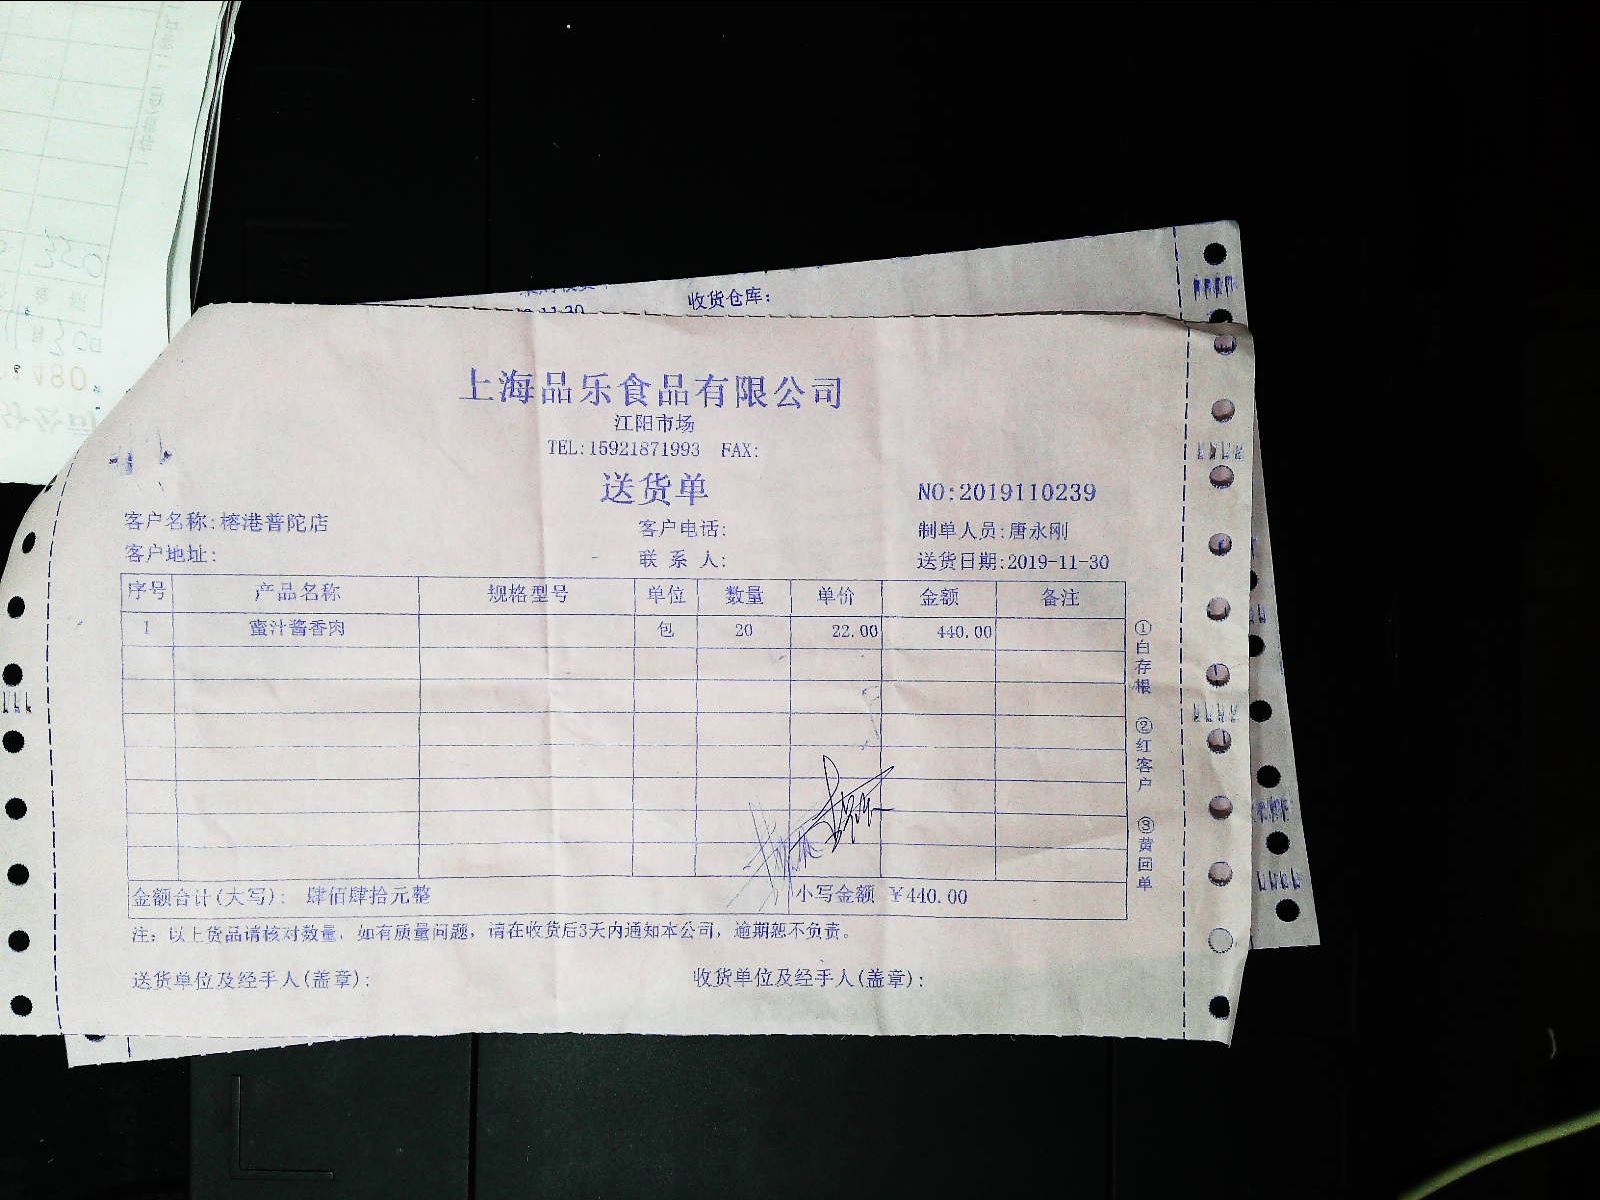 收货仓库:
上海品乐食品有限公司
江阳市场
TEL:15921871993 FAX:
送货单
NO:2019110239
客户名称:榕港普陀店 客户电话: 制单人员:唐永刚
客户地址: 联 系 人: 送货日期:2019-11-30
序号 产品名称 规格型号 单位 数量 单价 金额 备注
1 蜜汁酱香肉 包 20 22.00 440.00
①白存根 ②红客户 ③黄回单
金额合计(大写): 肆佰肆拾元整 小写金额 ¥440.00
注: 以上货品请核对数量, 如有质量问题, 请在收货后3天内通知本公司, 逾期恕不负责。
送货单位及经手人(盖章): 收货单位及经手人(盖章):